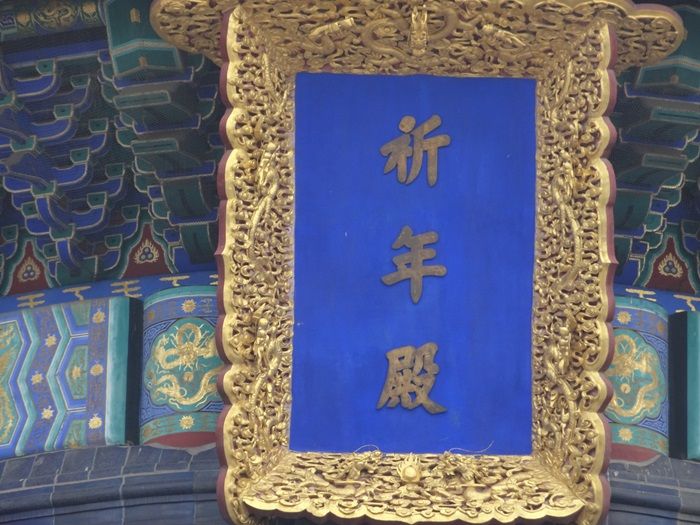 祈年殿